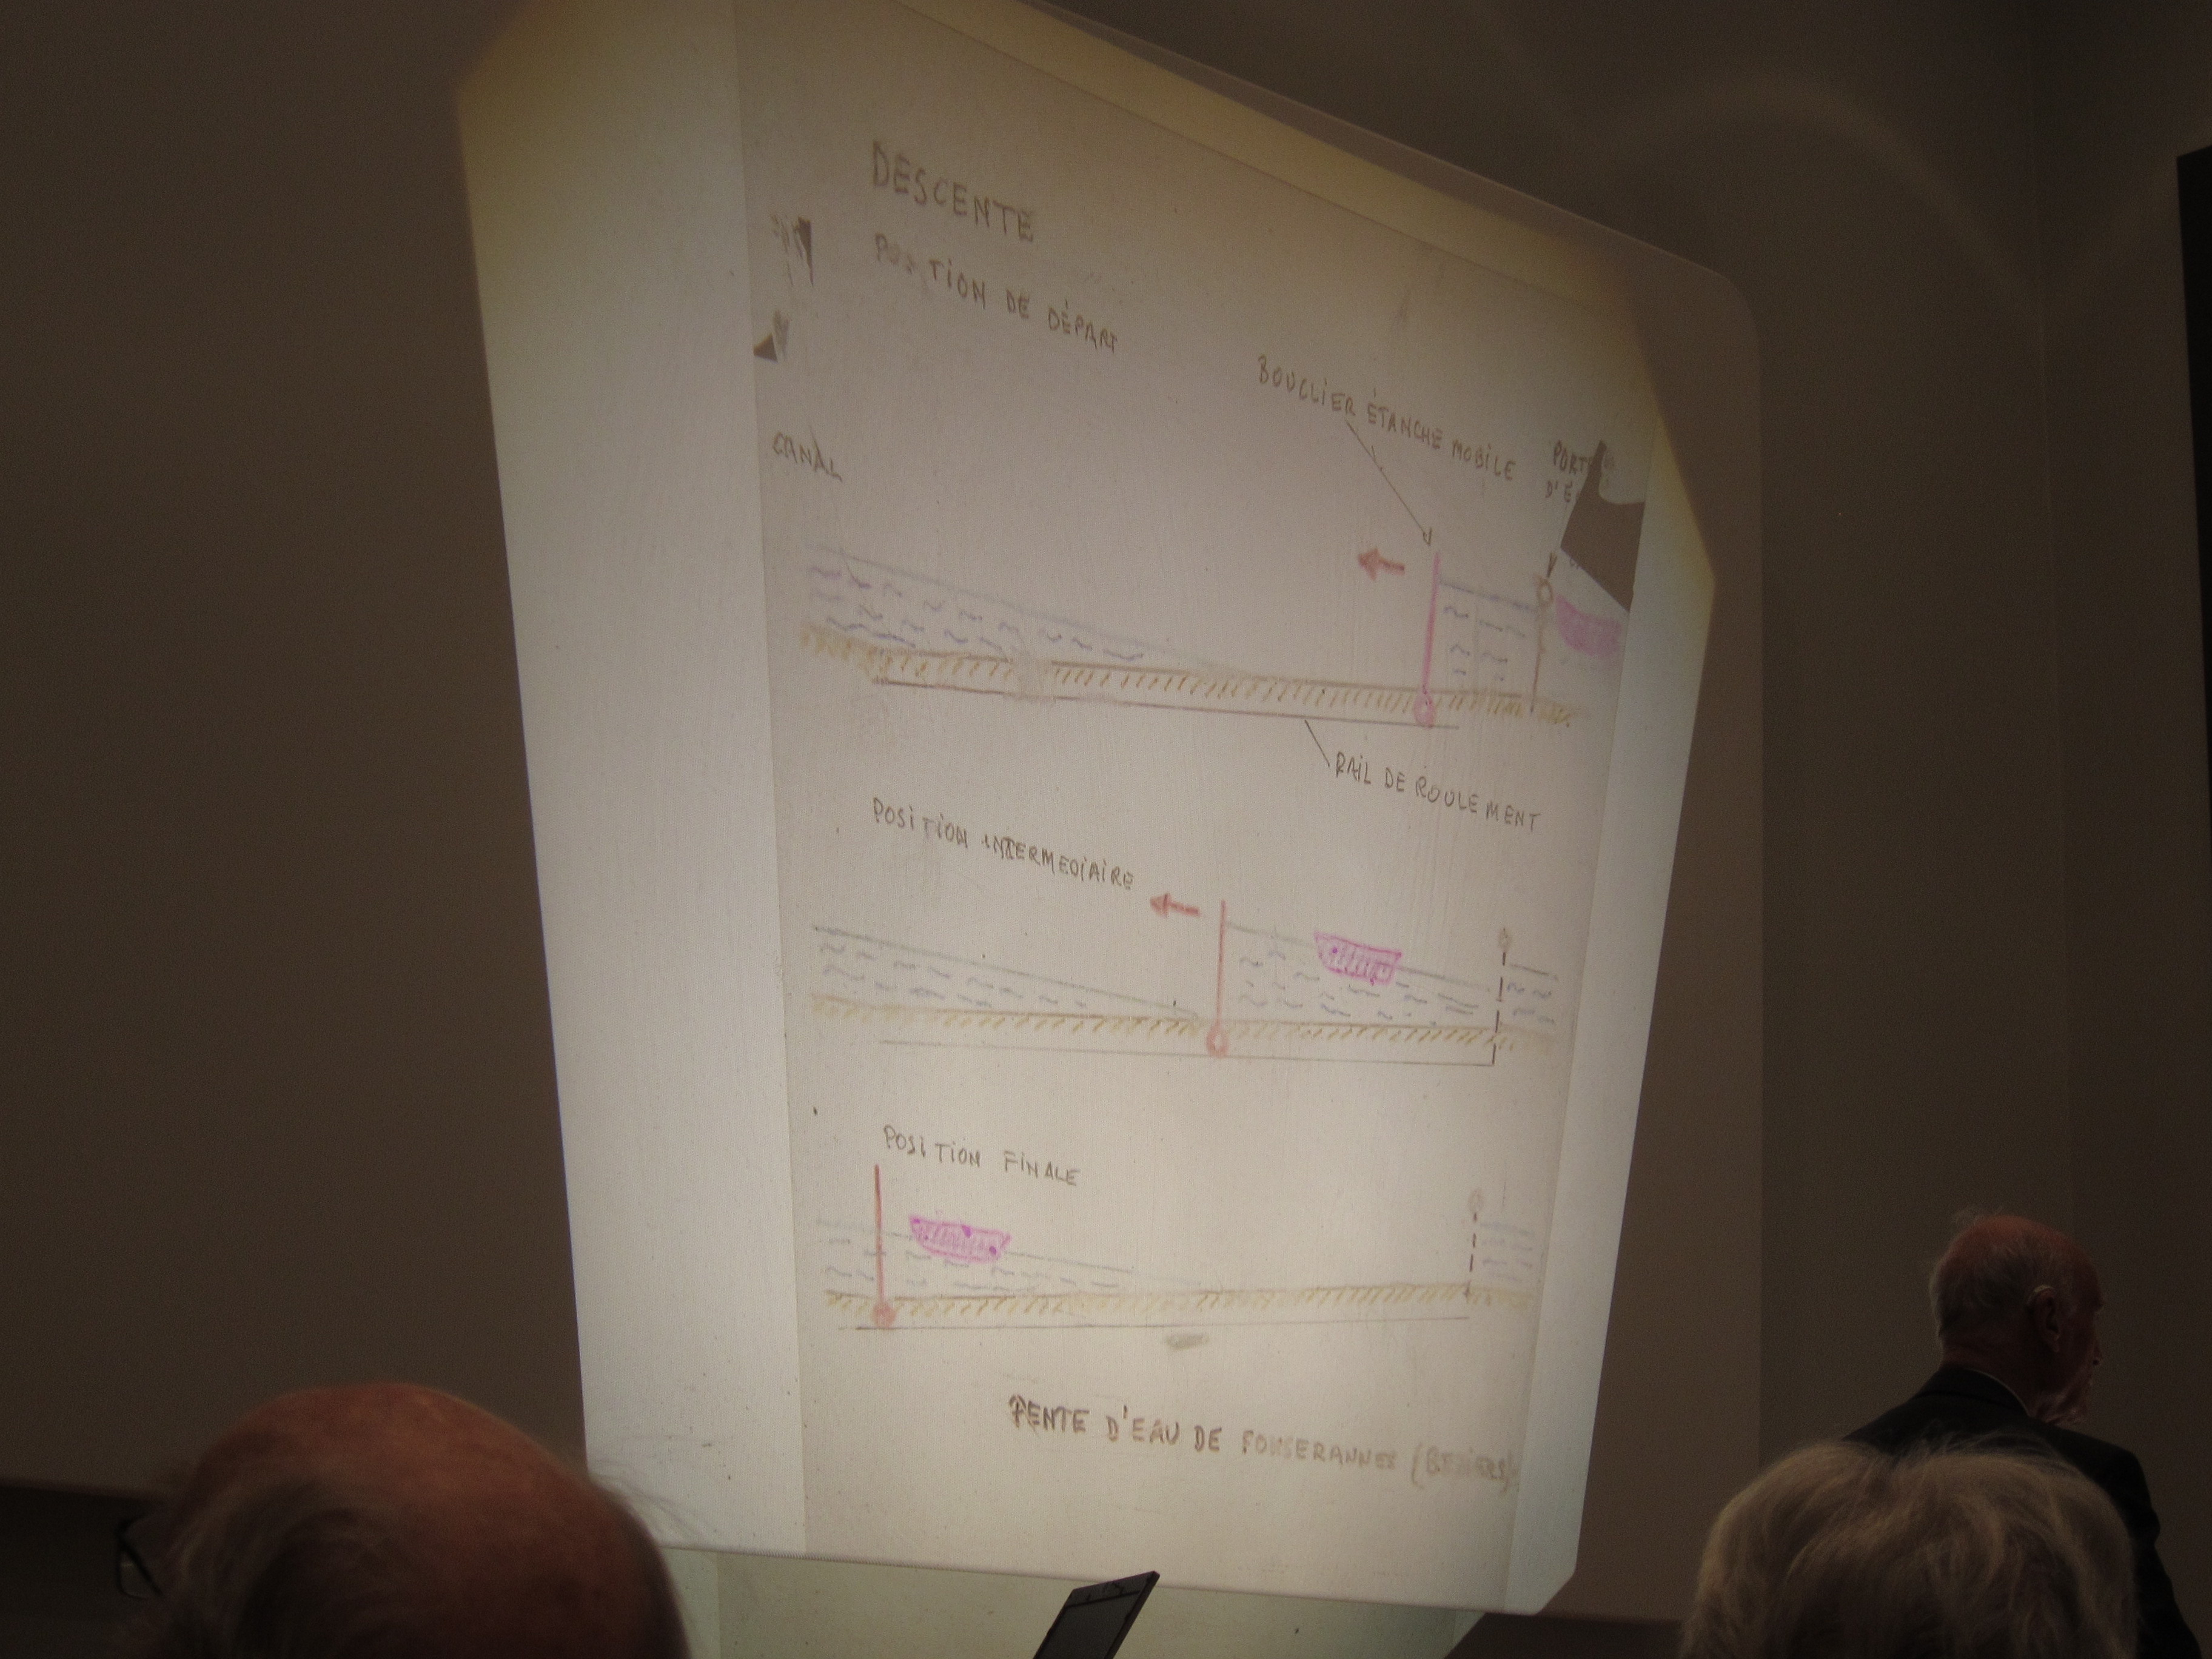 DESCENTE
POSITION DE DÉPART
BOUCLIER ÉTANCHE MOBILE
CANAL
RAIL DE ROULEMENT
POSITION INTERMEDIAIRE
POSITION FINALE
PENTE D'EAU DE FONSERANNES (BEZIERS)